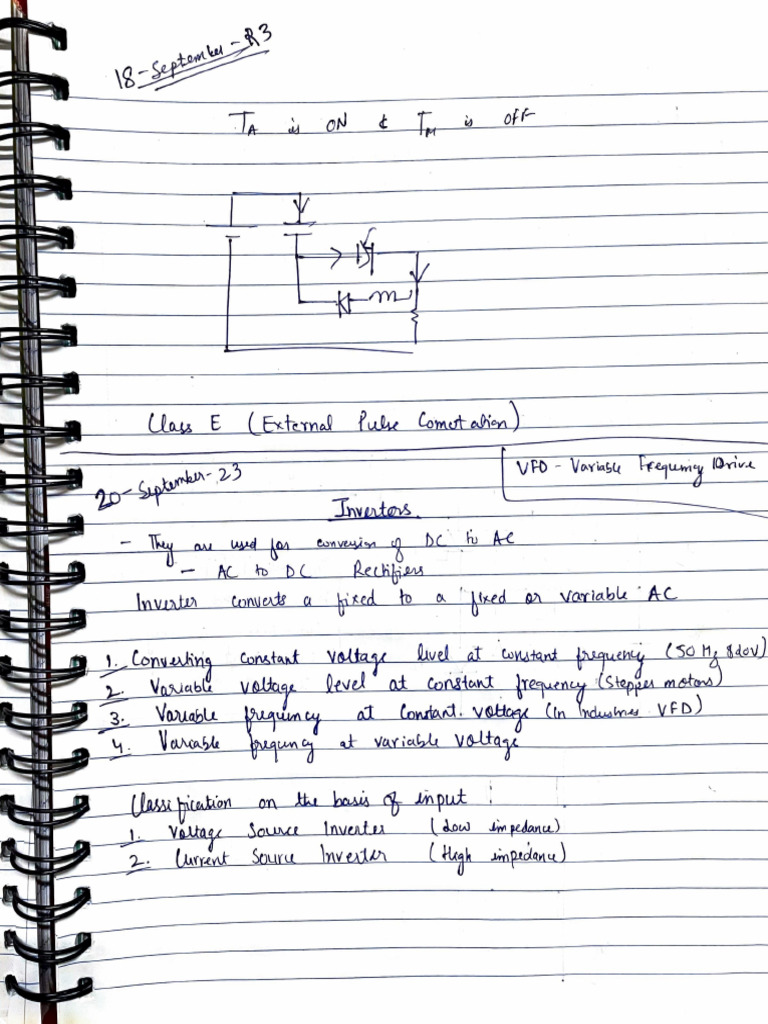 18-September-23
TA is ON & TM is OFF
Class E (External Pulse Comutation)
20-September-23
VFD - Variable Frequency Drive
Inverters
- They are used for conversion of DC to AC
- AC to DC Rectifiers
Inverter converts a fixed to a fixed or variable AC
1. Converting constant voltage level at constant frequency (50 Hz
2. Variable voltage level at constant frequency (Stepper motors)
3. Variable frequency at constant voltage (in Industries VFD)
4. Variable frequncy at variable voltage
Classification on the basis of input :
1. Voltage Source Inverter (Low impedance)
2. Current Source Inverter (High impedance)